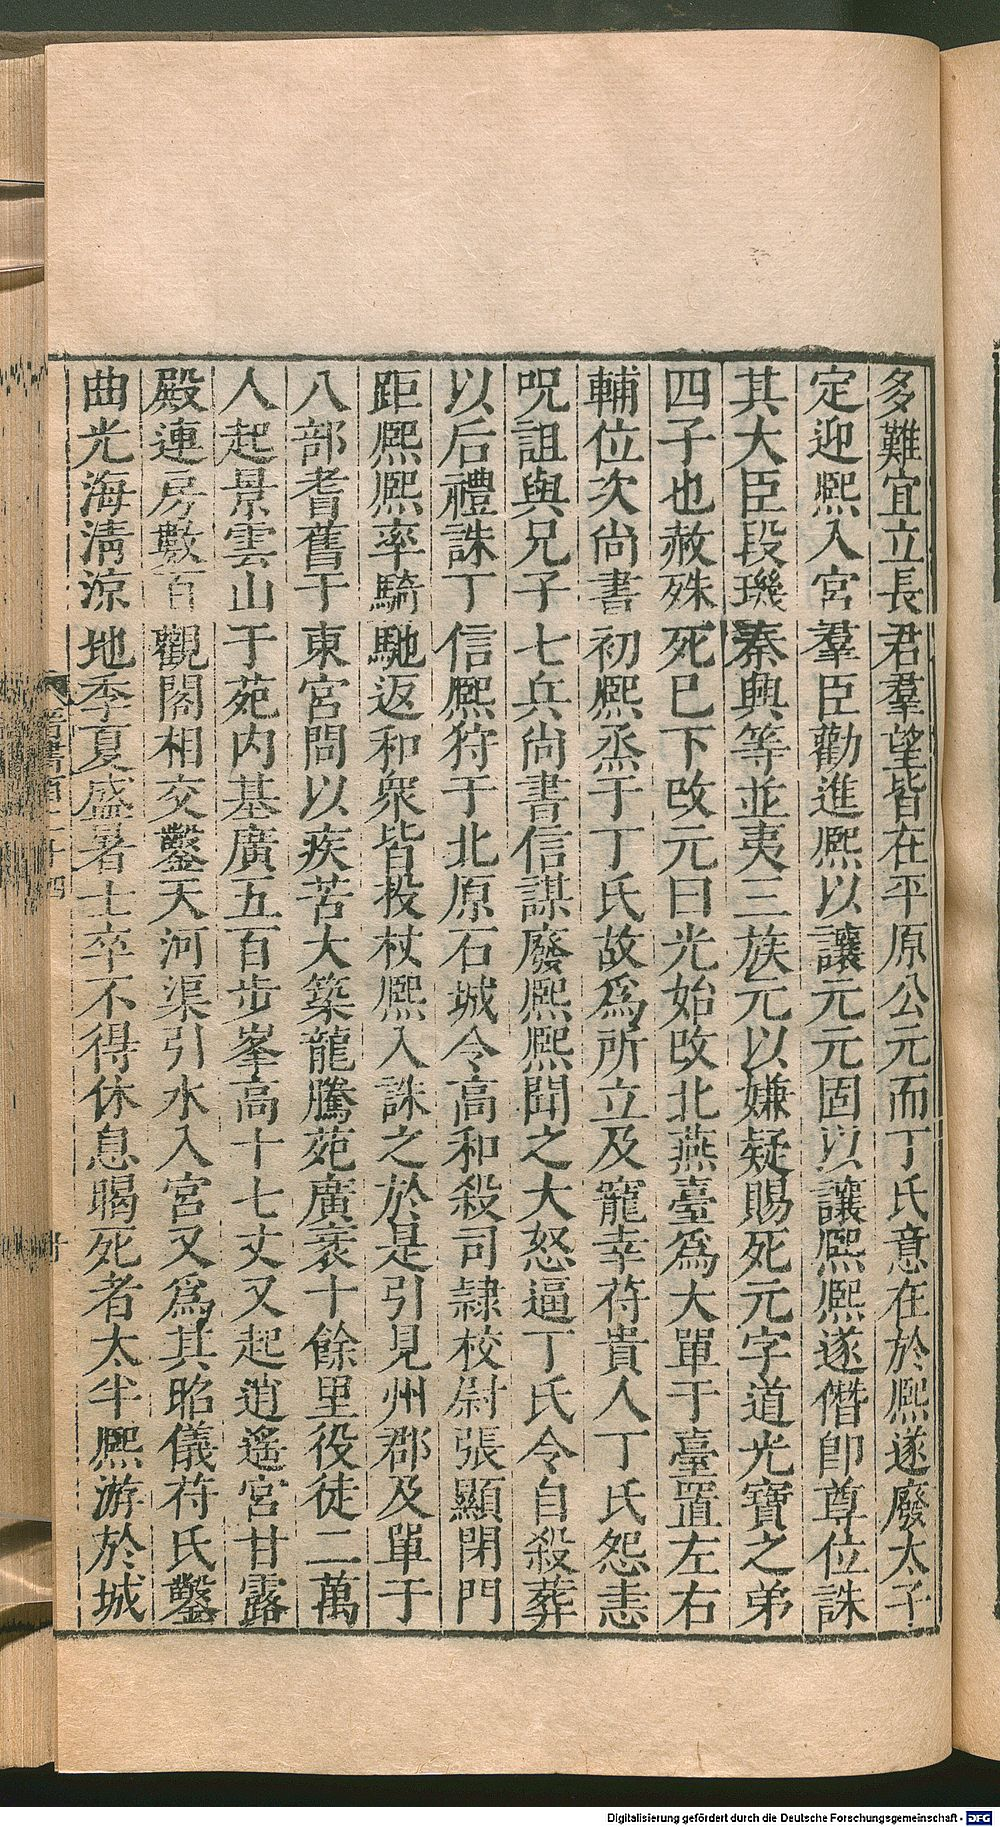 多難宜立長君羣望皆在平原公元而丁氏意在於熙遂廢太子
定迎熙入宮羣臣勸進熙以讓元元固以讓熙熙遂僭卽尊位誅
其大臣段璣秦興等並夷三族元以嫌疑賜死元字道光寶之弟
四子也赦殊死已下改元曰光始改北燕臺爲大單于臺置左右
輔位次尙書初熙烝于丁氏故爲所立及寵幸苻貴人丁氏怨恚
呪詛與兄子七兵尙書信謀廢熙熙聞之大怒逼丁氏令自殺葬
以后禮誅丁信熙狩于北原石城令高和殺司隷校尉張顯閉門
距熙熙率騎馳返和衆皆投杖熙入誅之於是引見州郡及單于
八部耆舊于東宮問以疾苦大築龍騰苑廣袤十餘里役徒二萬
人起景雲山于苑内基廣五百步峯高十七丈又起逍遙宮甘露
殿連房數百觀閣相交鑿天河渠引水入宮又爲其昭儀苻氏鑿
曲光海淸涼池季夏盛暑士卒不得休息暍死者太半熙游於城
晉書百二十四
Digitalisierung gefördert durch die Deutsche Forschungsgemeinschaft - DFG